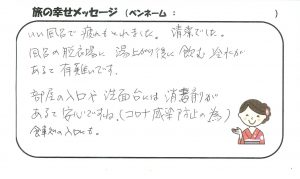 旅の幸せメッセージ (ペンネーム : )
いい風呂で疲れもとれました。清潔でした。
風呂の脱衣場に湯上がり後に飲む冷水が
あって有難いです。
部屋の入口や洗面台には消毒剤が
あって安心ですね。(コロナ感染防止の為)
食事処の入口にも。